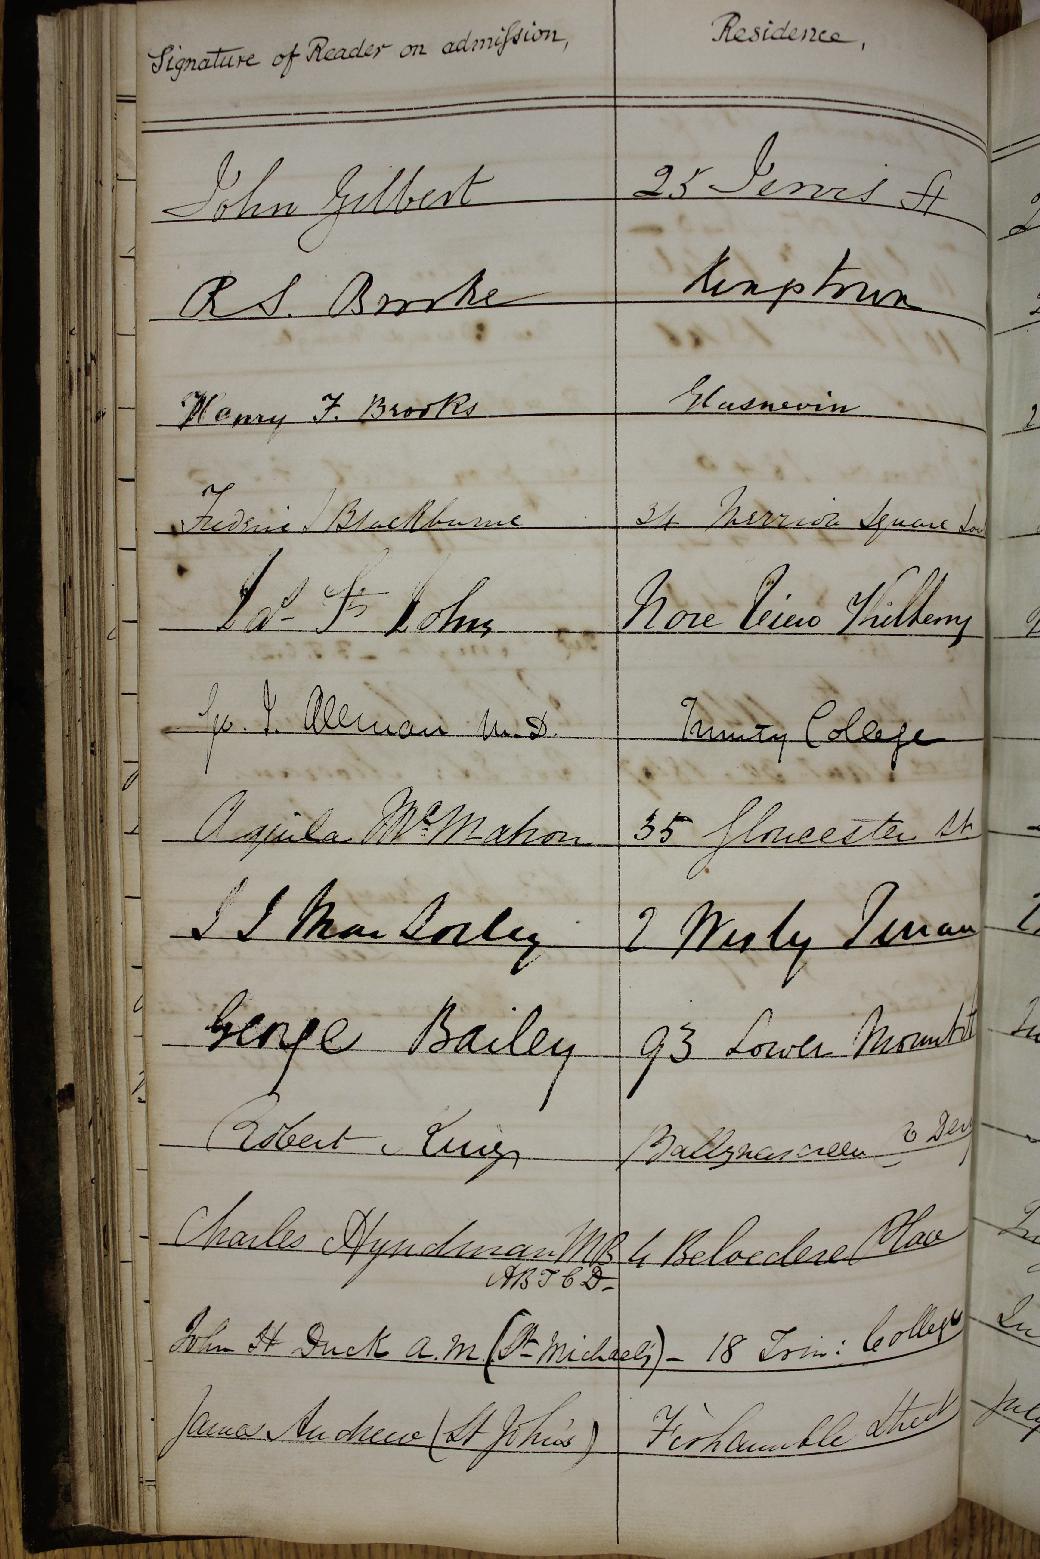 Signature of Reader on admission, Residence,
John Gilbert 25 Jervis St
R S. Brooke Kingstown
Henry F. Brooks Glasnevin
Frederic J Blackburne 34 Merrion Square Sou
Jas St John Nore View Kilkenny
Geo. J. Allman M.D. Trinity College
Aquila McMahon 35 Gloucester St
J J MacSorley 2 Wesly Terrau
George Bailey 93 Lower Mount St
Robert King Ballynascreen Co Derry
Charles Hyndman MB 4 Belvedere Place
AB T C D-
John H Duck A.M (St Michael's) - 18 Trin: College
James Andrew (St John's) Fishamble Street